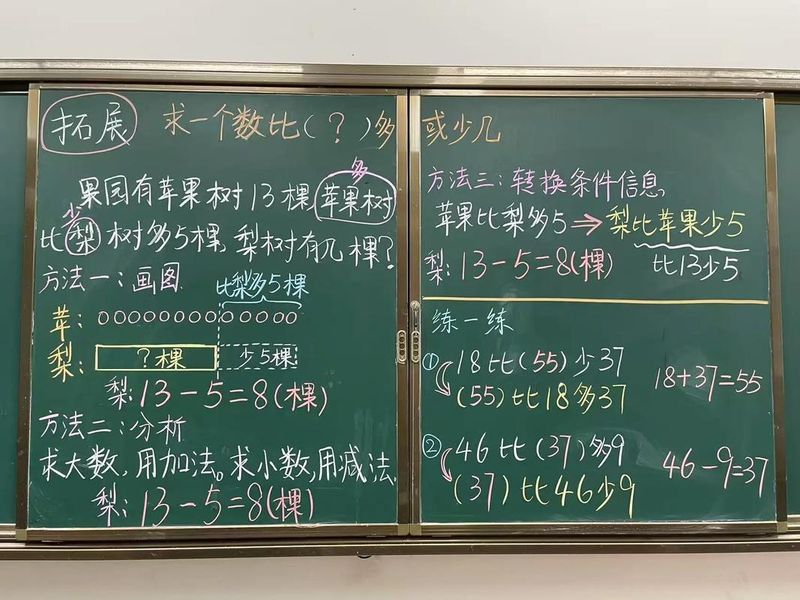 拓展 求一个数比(?)多或少几
多
果园有苹果树13棵,苹果树
少
比梨树多5棵,梨树有几棵?
方法一:画图
比梨多5棵
苹:○○○○○○○○○○○○○
梨: ?棵 少5棵
梨:13-5=8(棵)
方法二:分析
求大数,用加法。求小数,用减法。
梨:13-5=8(棵)
方法三:转换条件信息
苹果比梨多5⇒梨比苹果少5
梨:13-5=8(棵) 比13少5
练一练
① 18比(55)少37
(55)比18多37
18+37=55
② 46比(37)多9
(37)比46少9
46-9=37